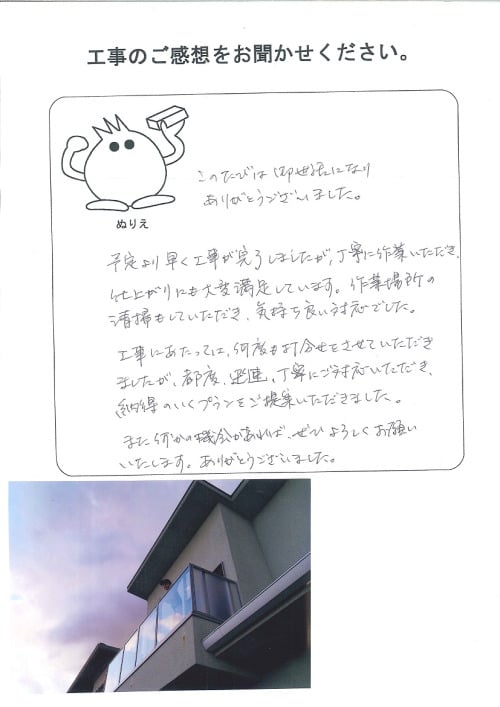 工事のご感想をお聞かせください。
ぬりえ
このたびは御世話になり
ありがとうございました。
予定より早く工事が完了しましたが、丁寧に作業いただき、
仕上がりにも大変満足しています。作業場所の
清掃もしていただき、気持ち良い対応でした。
工事にあたっては、何度も打合せをさせていただき
ましたが、都度、迅速、丁寧にご対応いただき、
納得のいくプランをご提案いただきました。
また何かの機会があれば、ぜひよろしくお願い
いたします。ありがとうございました。